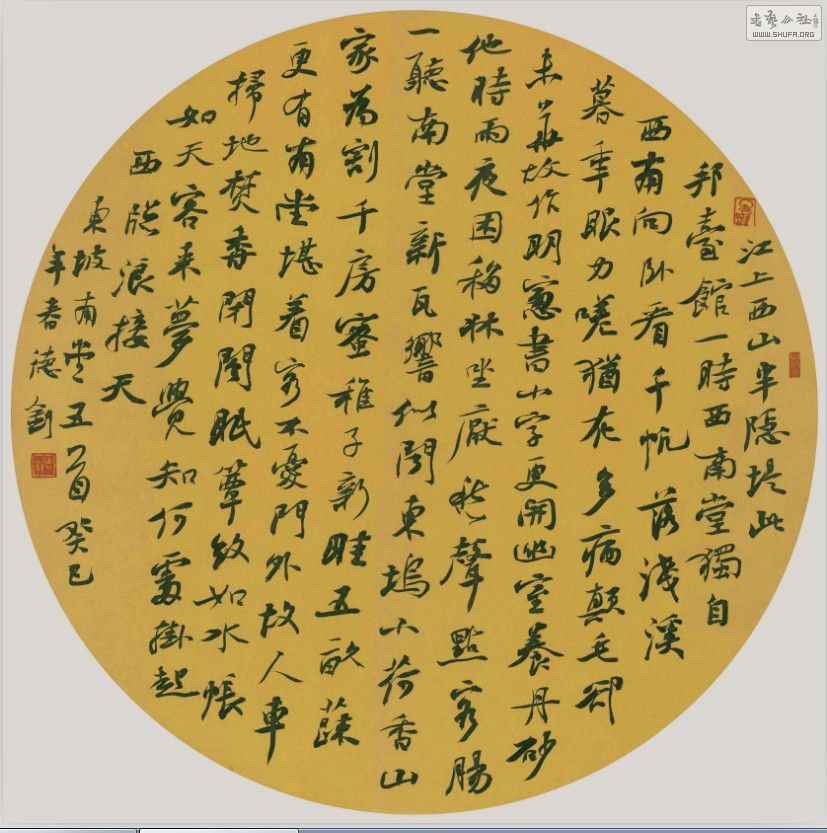 江上西山半隱堤此
邦臺館一時西南堂獨自
西南向臥看千帆落淺溪
暮年眼力嗟猶在多病顛毛卻
未華故作明窻書小字更開幽室養丹砂
他時雨夜困移牀坐厭愁聲點客腸
一聽南堂新瓦響似聞東塢小荷香山
家為割千房蜜稚子新畦五畝蔬
更有南堂堪着客不憂門外故人車
掃地焚香閉閣眠簟紋如水帳
如天客來夢覺知何處掛起
西牕浪接天
東坡南堂五首癸巳
年春德釗
書藝公社
WWW.SHUFA.ORG